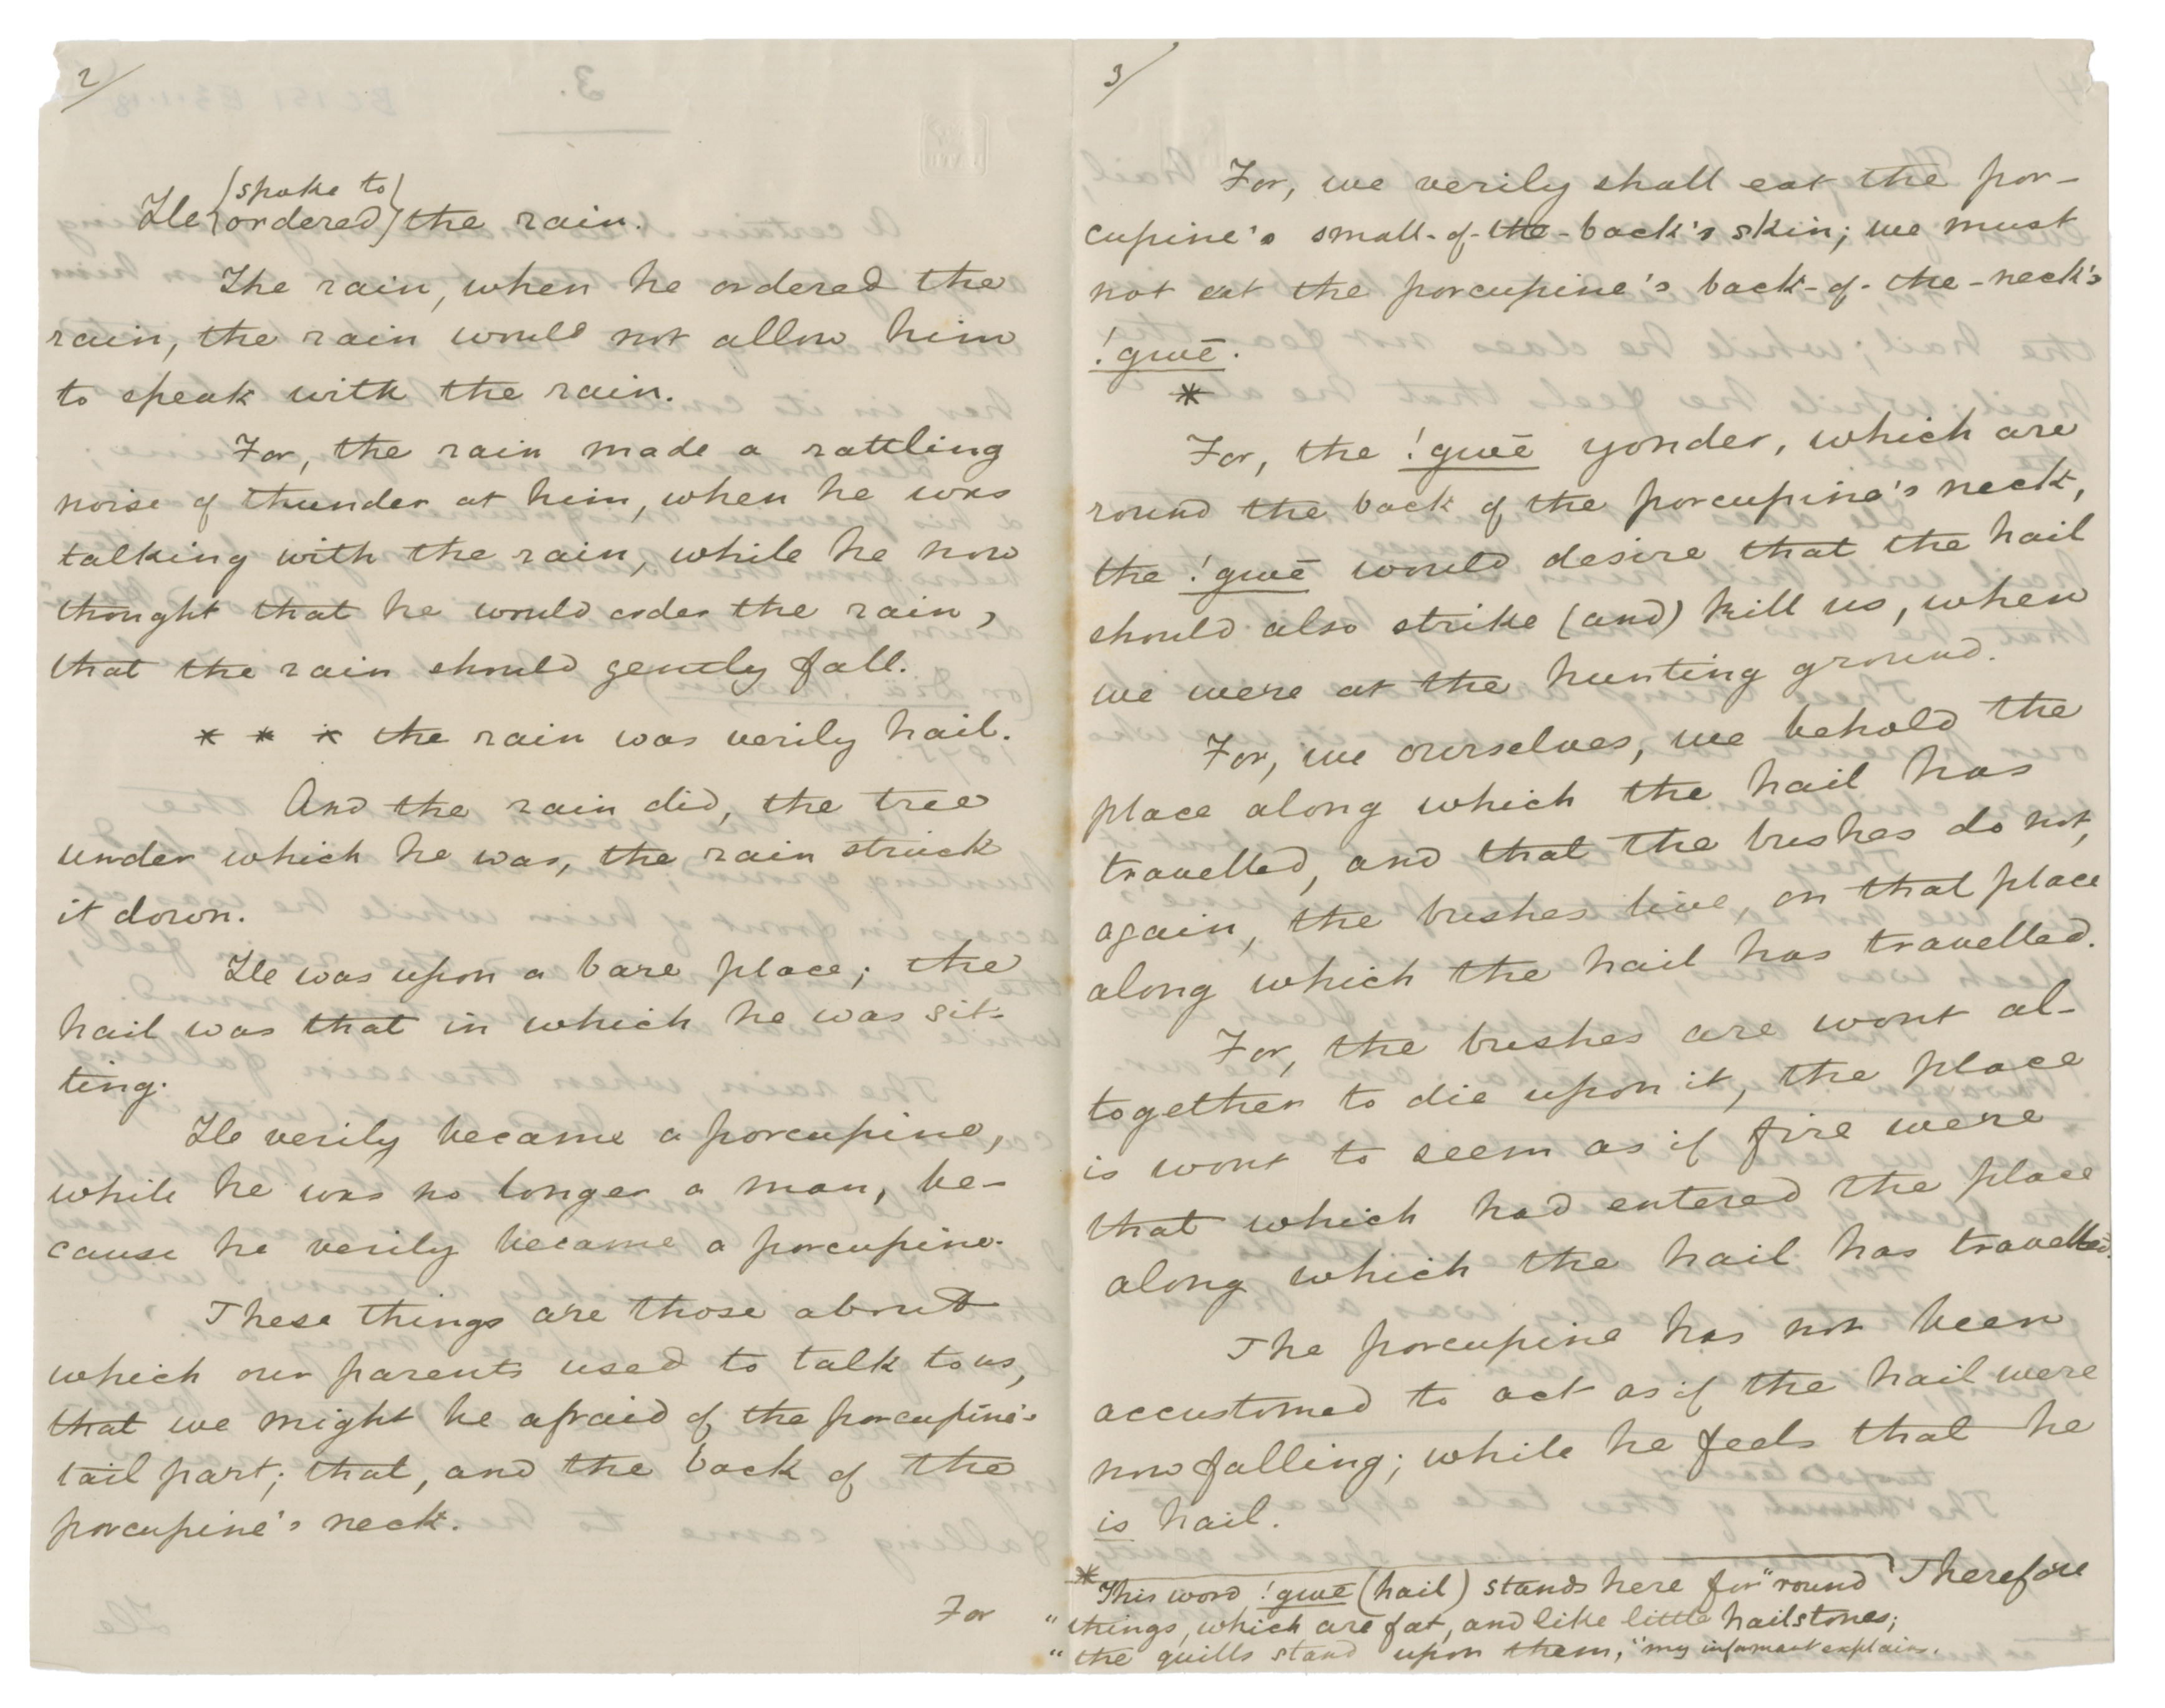 2/
{spoke to}
He {ordered} the rain.
The rain, when he ordered the
rain, the rain would not allow him
to speak with the rain.
For, the rain made a rattling
noise of thunder at him, when he was
talking with the rain, while he now
thought that he would order the rain,
that the rain should gently fall.
* * * the rain was verily hail.
And the rain did, the tree
under which he was, the rain struck
it down.
He was upon a bare place; the
hail was that in which he was sit-
ting.
He verily became a porcupine,
while he was no longer a man, be-
cause he verily became a porcupine.
These things are those about
which our parents used to talk to us,
that we might be afraid of the porcupine's
tail part; that, and the back of the
porcupine's neck.
For
3/
For, we verily shall eat the por-
cupine's small-of-the-back's skin; we must
not eat the porcupine's back-of-the-neck's
!guē.
*
For, the !guē yonder, which are
round the back of the porcupine's neck,
the !guē would desire that the hail
should also strike (and) kill us, when
we were at the hunting ground.
For, we ourselves, we behold the
place along which the hail has
travelled, and that the bushes do not,
again, the bushes live, on that place
along which the hail has travelled.
For, the bushes are wont al-
together to die upon it, the place
is wont to seem as if fire were
that which had entered the place
along which the hail has travelled.
The porcupine has not been
accustomed to act as if the hail were
now falling; while he feels that he
is hail.
Therefore
* This word !guē (hail) stands here for "round
" things, which are fat, and like little hailstones;
" the quills stand upon them," my informant explains.